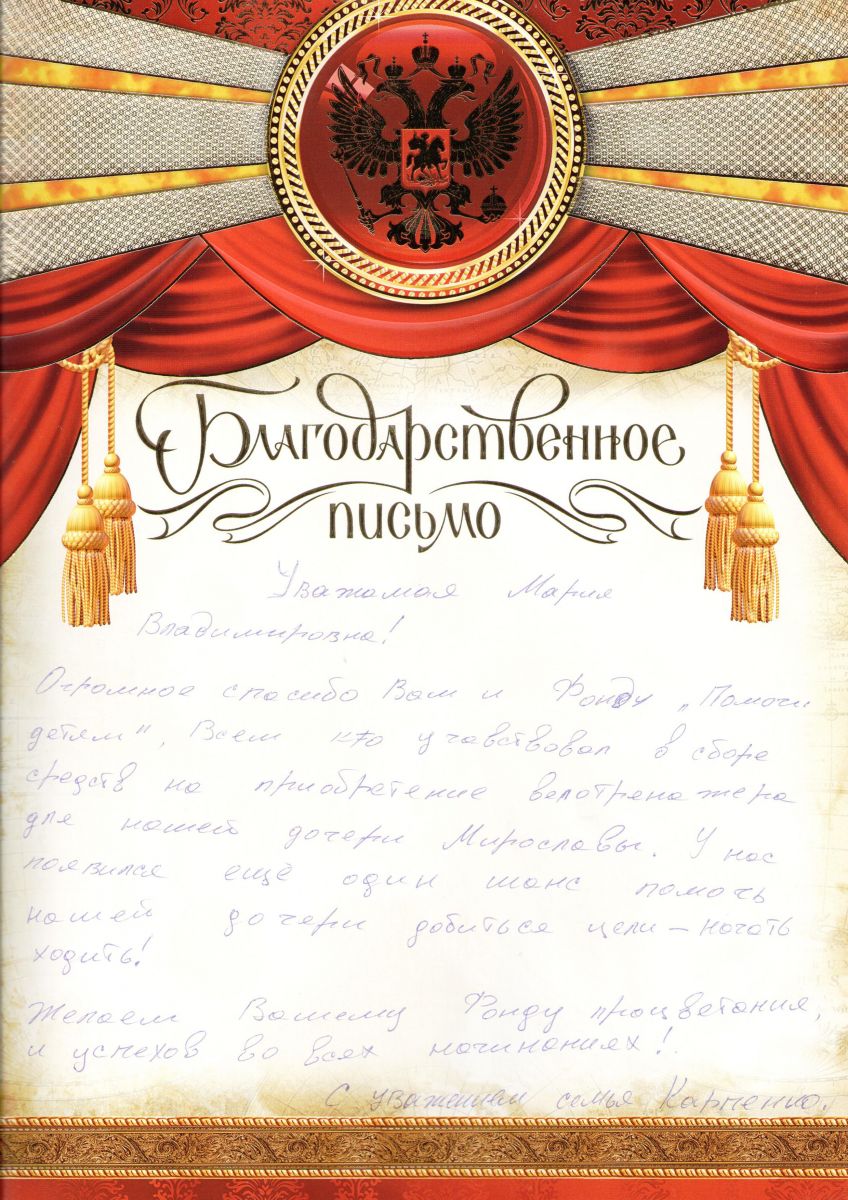 Благодарственное
письмо
Уважамая Мария
Владимировна!
Огромное спасибо Вам и Фонду „Помочи
детям", Всем кто учавствовал в сборе
средств на приобретение велотренажера
для нашей дочери Мирославы. У нас
появился ещё один шанс помочь
нашей дочери добиться цели – начать
ходить!
Желаем Вашему Фонду процветания,
и успехов во всех начинаниях!
С уважением семья Карпенко.